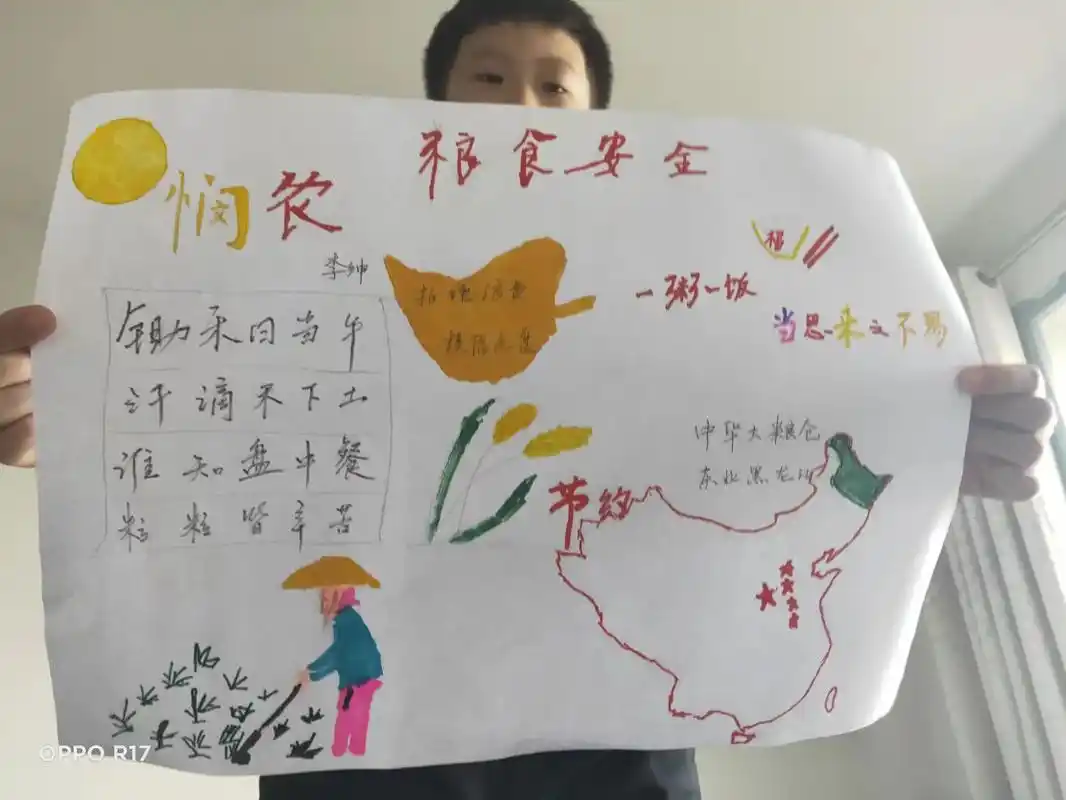 粮食安全
悯农
李绅
锄禾日当午
汗滴禾下土
谁知盘中餐
粒粒皆辛苦
粮
一粥一饭
当思来之不易
中华大粮仓
东北黑龙江
节约
OPPO R17